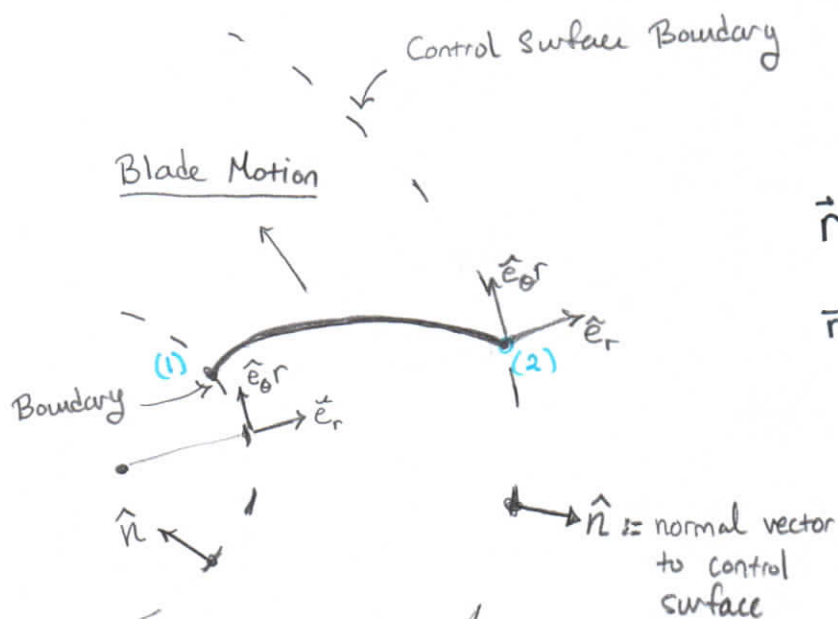 Control Surface Boundary
Blade Motion
r⃗
ê_θ r
ê_r
(1)
(2)
r⃗
ê_θ r
ê_r
Boundary
n̂
n̂ := normal vector
to control
surface